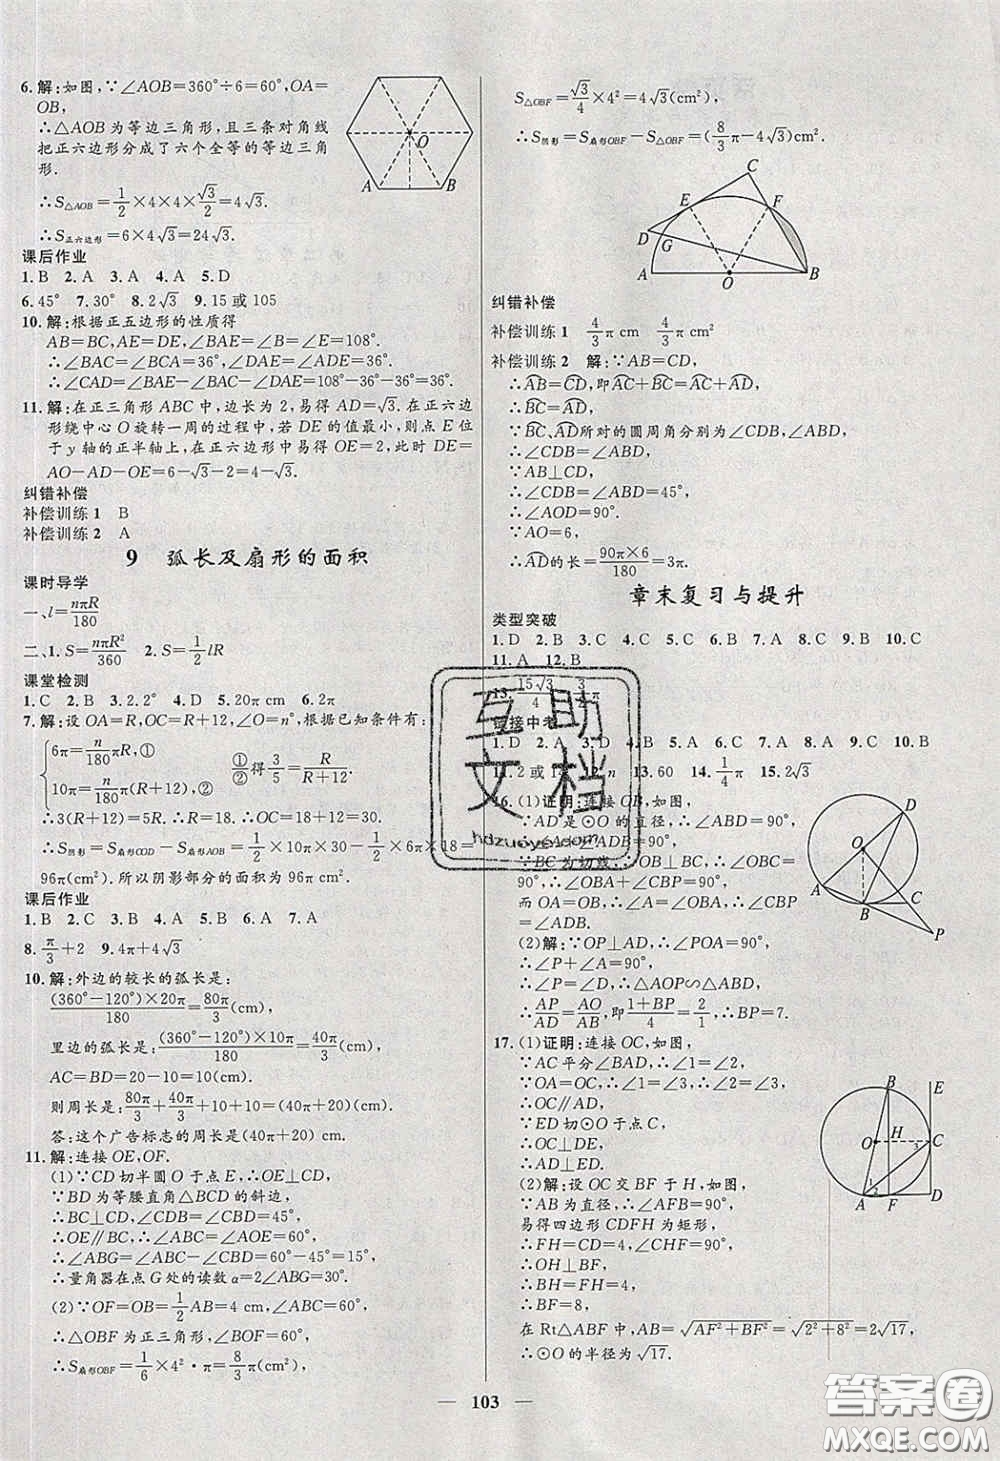 6.解:如图,∵∠AOB=360°÷6=60°,OA=
OB,
∴△AOB为等边三角形,且三条对角线
把正六边形分成了六个全等的等边三角
形.
∴S△AOB=1/2×4×4×√3/2=4√3.
∴S正六边形=6×4√3=24√3.
O
A B
课后作业
1.B 2.A 3.A 4.A 5.D
6.45° 7.30° 8.2√3 9.15或105
10.解:根据正五边形的性质得
AB=BC,AE=DE,∠BAE=∠E=108°.
∴∠BAC=∠BCA=36°,∠DAE=∠ADE=36°.
∴∠CAD=∠BAE-∠BAC-∠DAE=108°-36°-36°=36°.
11.解:在正三角形ABC中,边长为2,易得AD=√3.在正六边
形绕中心O旋转一周的过程中,若DE的值最小,则点E位
于y轴的正半轴上,在正六边形中易得OE=2,此时DE=
AO-AD-OE=6-√3-2=4-√3.
纠错补偿
补偿训练1 B
补偿训练2 A
9 弧长及扇形的面积
课时导学
一、l=nπR/180
二、1.S=nπR²/360 2.S=1/2 lR
课堂检测
1.C 2.B 3.2.2° 4.D 5.20π cm 6.2π
7.解:设OA=R,OC=R+12,∠O=n°,根据已知条件有:
6π=n/180 πR,①
10π=n/180 π(R+12),②
①/②得3/5=R/(R+12).
∴3(R+12)=5R.∴R=18.∴OC=18+12=30.
∴S阴影=S扇形COD-S扇形AOB=1/2×10π×30-1/2×6π×18=
96π(cm²).所以阴影部分的面积为96π cm².
课后作业
1.B 2.C 3.C 4.B 5.B 6.A 7.A
8.π/3+2 9.4π+4√3
10.解:外边的较长的弧长是:
(360°-120°)×20π/180=80π/3(cm).
里边的弧长是:(360°-120°)×10π/180=40π/3(cm),
AC=BD=20-10=10(cm).
则周长是:80π/3+40π/3+10+10=(40π+20)(cm).
答:这个广告标志的周长是(40π+20)cm.
11.解:连接OE,OF.
(1)∵CD切半圆O于点E,∴OE⊥CD,
∵BD为等腰直角△BCD的斜边,
∴BC⊥CD,∠CDB=∠CBD=45°,
∴OE∥BC.∴∠ABC=∠AOE=60°.
∴∠ABG=∠ABC-∠CBD=60°-45°=15°.
∴量角器在点G处的读数α=2∠ABG=30°.
(2)∵OF=OB=1/2AB=4 cm,∠ABC=60°,
∴△OBF为正三角形,∠BOF=60°.
∴S扇形OBF=1/6×4²·π=8/3π(cm²),
S△OBF=√3/4×4²=4√3(cm²),
∴S阴影=S扇形OBF-S△OBF=(8/3π-4√3)cm².
C
E F
D G
A O B
纠错补偿
补偿训练1 4/3π cm 4/3π cm²
补偿训练2 解:∵AB=CD,
∴AB=CD,即AC+BC=AC+AD.
∴BC=AD.
∵BC、AD所对的圆周角分别为∠CDB,∠ABD,
∴∠CDB=∠ABD.
∵AB⊥CD,
∴∠CDB=∠ABD=45°,
∴∠AOD=90°.
∵AO=6,
∴AD的长=90π×6/180=3π.
章末复习与提升
类型突破
1.D 2.B 3.C 4.C 5.C 6.D 7.B 8.C 9.B 10.C
11.A 12.B
13.15√3/4-3/2π
链接中考
1.D 2.A 3.D 4.B 5.A 6.D 7.A 8.C 9.D 10.B
11.2或14 12.n 13.60 14.1/4π 15.2√3
16.(1)证明:连接OB,如图,
∵AD是⊙O的直径,∴∠ABD=90°.
∴∠A+∠ADB=90°.
∵BC为切线,∴OB⊥BC.∴∠OBC=
90°.∴∠OBA+∠CBP=90°,
而OA=OB,∴∠A=∠OBA.∴∠CBP=
∠ADB.
(2)解:∵OP⊥AD,∴∠POA=90°,
∴∠P+∠A=90°,
∴∠P=∠D,∴△AOP∽△ABD,
∴AP/AD=AO/AB,∴(1+BP)/4=2/1,∴BP=7.
D
O
A B C
P
17.(1)证明:连接OC,如图,
∵AC平分∠BAD,∴∠1=∠2,
∵OA=OC,∴∠1=∠3,∴∠2=∠3,
∴OC∥AD,
∵ED切⊙O于点C,
∴OC⊥DE,
∴AD⊥ED.
(2)解:设OC交BF于H,如图,
∵AB为直径,∴∠AFB=90°,
易得四边形CDFH为矩形,
∴FH=CD=4,∠CHF=90°,
∴OH⊥BF,
∴BH=FH=4,
∴BF=8,
在Rt△ABF中,AB=√(AF²+BF²)=√(2²+8²)=2√17,
∴⊙O的半径为√17.
B E
H
O 3 C
1 2
A F D
互助
文档
hdzuoye.com
— 103 —
答案圈
MXQE.COM